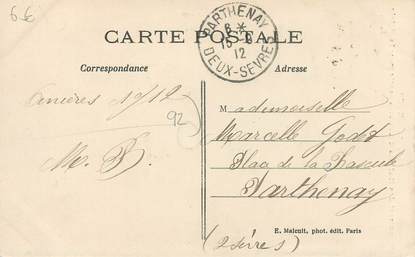 6€
PARTHENAY
DEUX-SEVRES
12
CARTE POSTALE
Correspondance
Adresse
Asnières 1912
92
M. B.
Mademoiselle
Marcelle Godet
Place de la Bascule
Parthenay
E. Malcuit, phot. édit. Paris
(2 Sèvres)